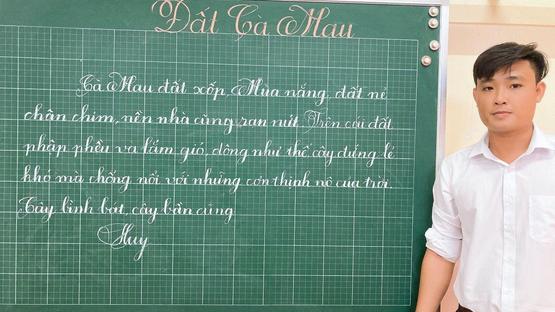 Đất Cà Mau
Cà Mau đất xốp. Mùa nắng, đất nẻ
chân chim, nền nhà cũng rạn nứt. Trên cái đất
phập phều và lắm gió, dông như thế, cây đứng lẻ
khó mà chống nổi với những cơn thịnh nộ của trời.
Cây bình bát, cây bần cũng
Huy